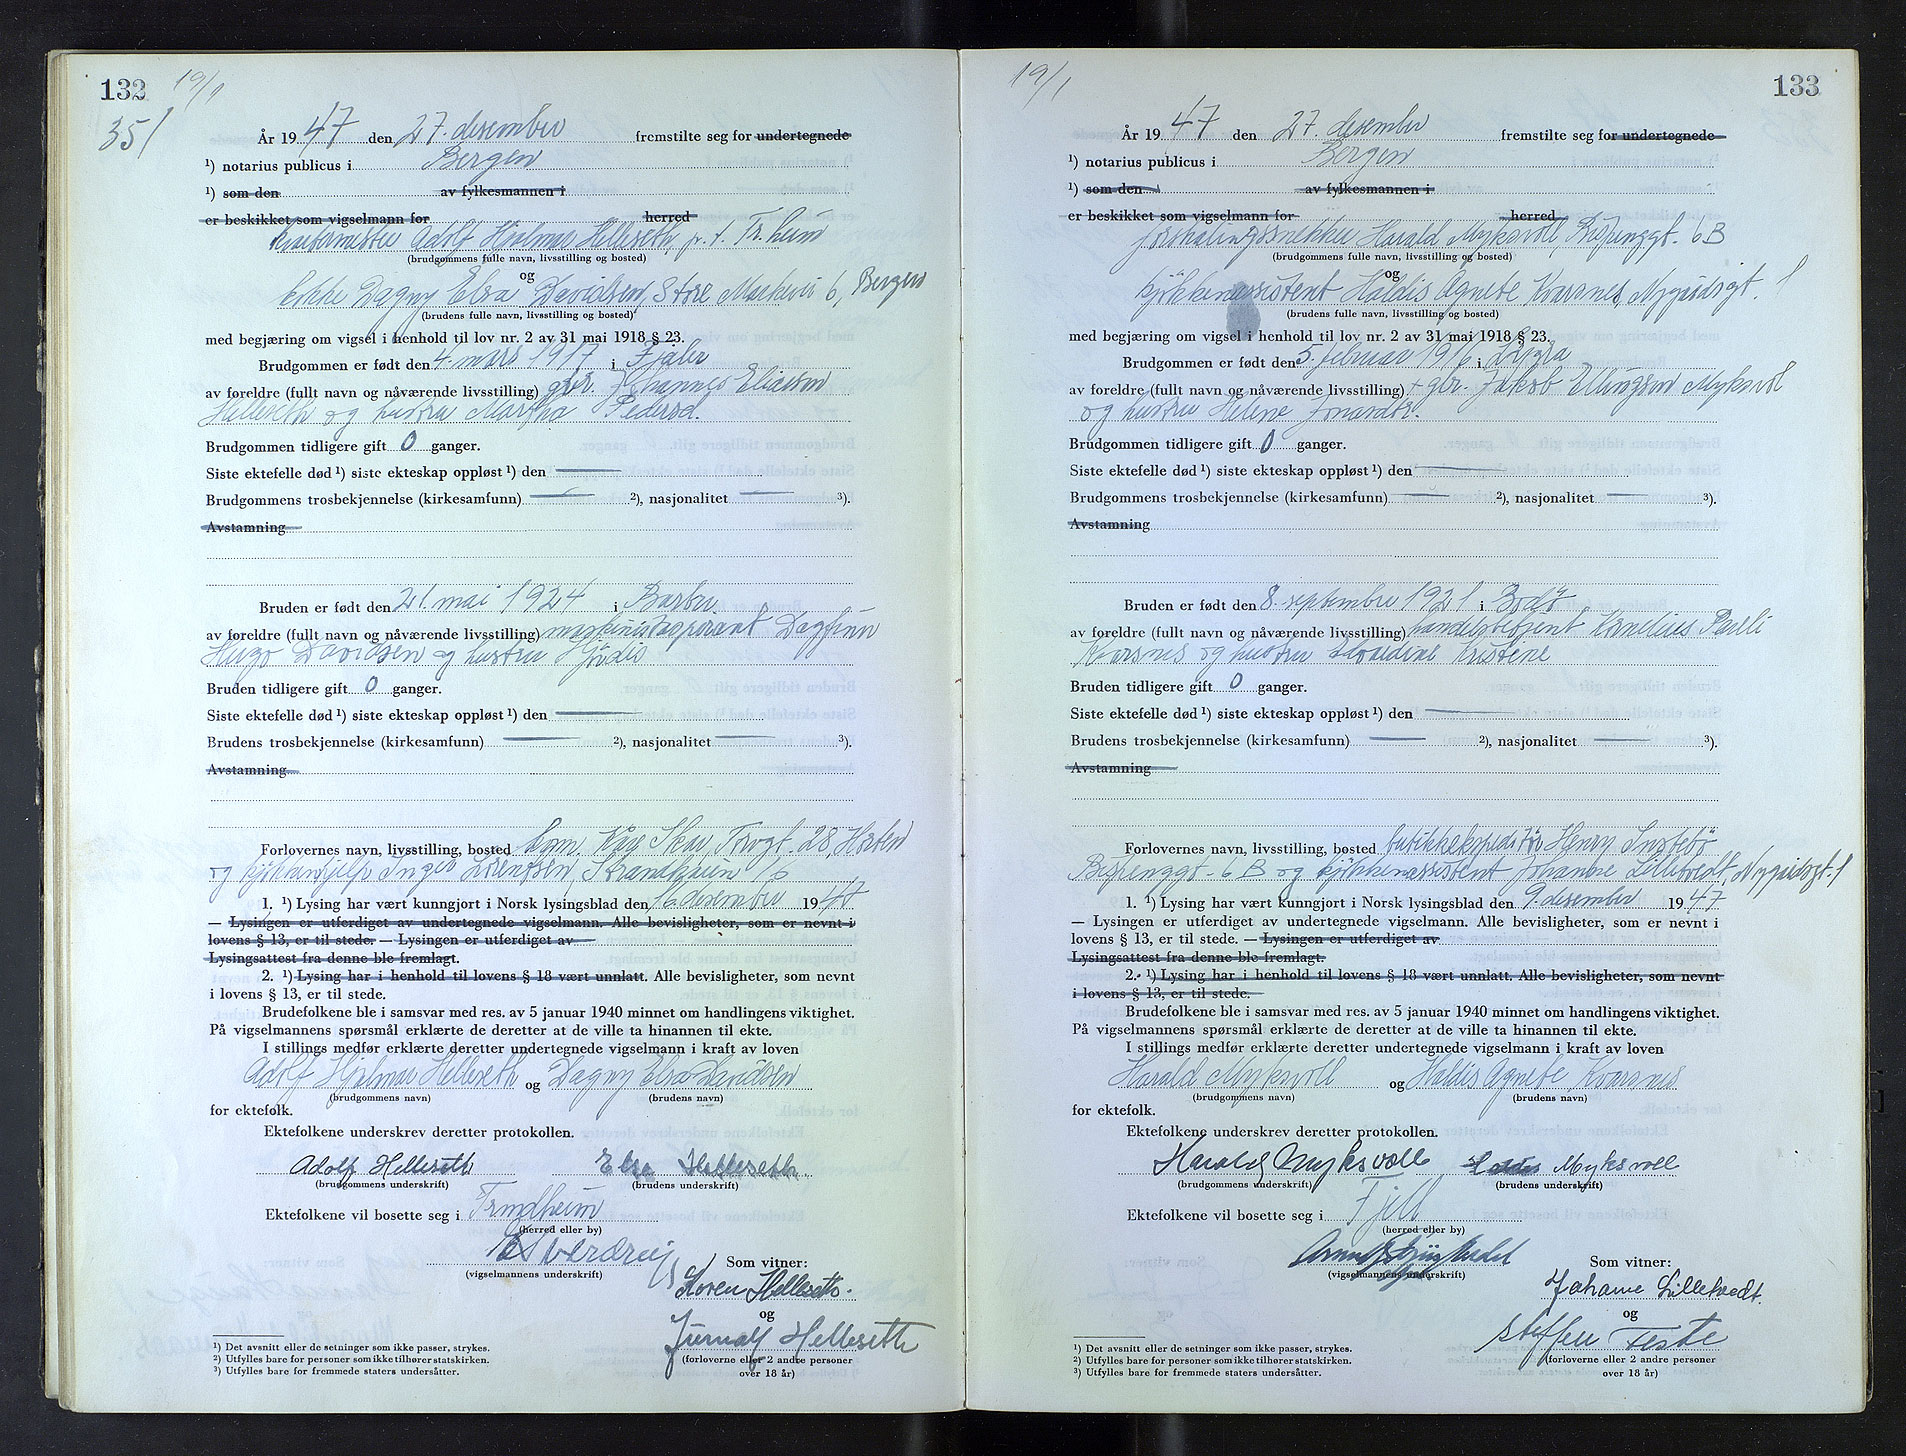 132 19/1
351
År 1947 den 27. desember fremstilte seg for undertegnede
¹) notarius publicus i Bergen
¹) som den av fylkesmannen i
er beskikket som vigselmann for herred
Adolf Hjalmar Helleseth, p. t. Tr.heim
(brudgommens fulle navn, livsstilling og bosted)
og
Dagny Elsa Davidsen, Store Markevei 6, Bergen
(brudens fulle navn, livsstilling og bosted)
med begjæring om vigsel i henhold til lov nr. 2 av 31 mai 1918 § 23.
Brudgommen er født den 4. mars 1917 i Fjaler
av foreldre (fullt navn og nåværende livsstilling) gbr. Johannes Eliassen
Helleseth og hustru Martha Pedersd.
Brudgommen tidligere gift 0 ganger.
Siste ektefelle død ¹) siste ekteskap oppløst ¹) den
Brudgommens trosbekjennelse (kirkesamfunn) ²), nasjonalitet ³).
Avstamning
Bruden er født den 21. mai 1924 i Barbu
av foreldre (fullt navn og nåværende livsstilling) maskinistaspirant Dagfinn
Hugo Davidsen og hustru Hjördis
Bruden tidligere gift 0 ganger.
Siste ektefelle død ¹) siste ekteskap oppløst ¹) den
Brudens trosbekjennelse (kirkesamfunn) ²), nasjonalitet ³).
Avstamning
Forlovernes navn, livsstilling, bosted Kåre Skar, 28, Horten
og kjökkenhjelp Inger Lorentzen,
1. ¹) Lysing har vært kunngjort i Norsk lysingsblad den 16 desember 1947
— Lysingen er utferdiget av undertegnede vigselmann. Alle bevisligheter, som er nevnt i
lovens § 13, er til stede. — Lysingen er utferdiget av
Lysingsattest fra denne ble fremlagt.
2. ¹) Lysing har i henhold til lovens § 18 vært unnlatt. Alle bevisligheter, som nevnt
i lovens § 13, er til stede.
Brudefolkene ble i samsvar med res. av 5 januar 1940 minnet om handlingens viktighet.
På vigselmannens spørsmål erklærte de deretter at de ville ta hinannen til ekte.
I stillings medfør erklærte deretter undertegnede vigselmann i kraft av loven
Adolf Hjalmar Helleseth og Dagny Elsa Davidsen
(brudgommens navn) (brudens navn)
for ektefolk.
Ektefolkene underskrev deretter protokollen.
Adolf Helleseth Elsa Helleseth
(brudgommens underskrift) (brudens underskrift)
Ektefolkene vil bosette seg i Trondheim
(herred eller by)
Sverdrup
(vigselmannens underskrift)
Som vitner:
Koren Helleseth.
og
Helleseth
(forloverne eller 2 andre personer
over 18 år)
¹) Det avsnitt eller de setninger som ikke passer, strykes.
²) Utfylles bare for personer som ikke tilhører statskirken.
³) Utfylles bare for fremmede staters undersåtter.
19/1 133
År 1947 den 27. desember fremstilte seg for undertegnede
¹) notarius publicus i Bergen
¹) som den av fylkesmannen i
er beskikket som vigselmann for herred
forskalingssnekker Harald Myksvoll, Bispenggt. 6B
(brudgommens fulle navn, livsstilling og bosted)
og
kjøkkenassistent Haldis Agnete Kvarsnes, Nygårdsgt. 1
(brudens fulle navn, livsstilling og bosted)
med begjæring om vigsel i henhold til lov nr. 2 av 31 mai 1918 § 23.
Brudgommen er født den 5. februar 1916 i Lygra
av foreldre (fullt navn og nåværende livsstilling) + gbr. Jakob Ellingsen Myksvoll
og hustru Helene Jonardtr.
Brudgommen tidligere gift 0 ganger.
Siste ektefelle død ¹) siste ekteskap oppløst ¹) den
Brudgommens trosbekjennelse (kirkesamfunn) ²), nasjonalitet ³).
Avstamning
Bruden er født den 8. september 1921 i Bodö
av foreldre (fullt navn og nåværende livsstilling) handelsbetjent Kornelius Pareli
Kvarsnes og hustru Kristene
Bruden tidligere gift 0 ganger.
Siste ektefelle død ¹) siste ekteskap oppløst ¹) den
Brudens trosbekjennelse (kirkesamfunn) ²), nasjonalitet ³).
Avstamning
Forlovernes navn, livsstilling, bosted butikkekspeditör Henry Instebö
Bispenggt. 6B og kjökkenassistent Johanne Lilletvedt, Nygårdsgt. 1
1. ¹) Lysing har vært kunngjort i Norsk lysingsblad den 9. desember 1947
— Lysingen er utferdiget av undertegnede vigselmann. Alle bevisligheter, som er nevnt i
lovens § 13, er til stede. — Lysingen er utferdiget av
Lysingsattest fra denne ble fremlagt.
2. ¹) Lysing har i henhold til lovens § 18 vært unnlatt. Alle bevisligheter, som nevnt
i lovens § 13, er til stede.
Brudefolkene ble i samsvar med res. av 5 januar 1940 minnet om handlingens viktighet.
På vigselmannens spørsmål erklærte de deretter at de ville ta hinannen til ekte.
I stillings medfør erklærte deretter undertegnede vigselmann i kraft av loven
Harald Myksvoll og Haldis Agnete Kvarsnes
(brudgommens navn) (brudens navn)
for ektefolk.
Ektefolkene underskrev deretter protokollen.
Harald Myksvoll Haldis Myksvoll
(brudgommens underskrift) (brudens underskrift)
Ektefolkene vil bosette seg i Fjell
(herred eller by)
(vigselmannens underskrift)
Som vitner:
Johanne Lilletvedt.
og
Steffen Teste
(forloverne eller 2 andre personer
over 18 år)
¹) Det avsnitt eller de setninger som ikke passer, strykes.
²) Utfylles bare for personer som ikke tilhører statskirken.
³) Utfylles bare for fremmede staters undersåtter.